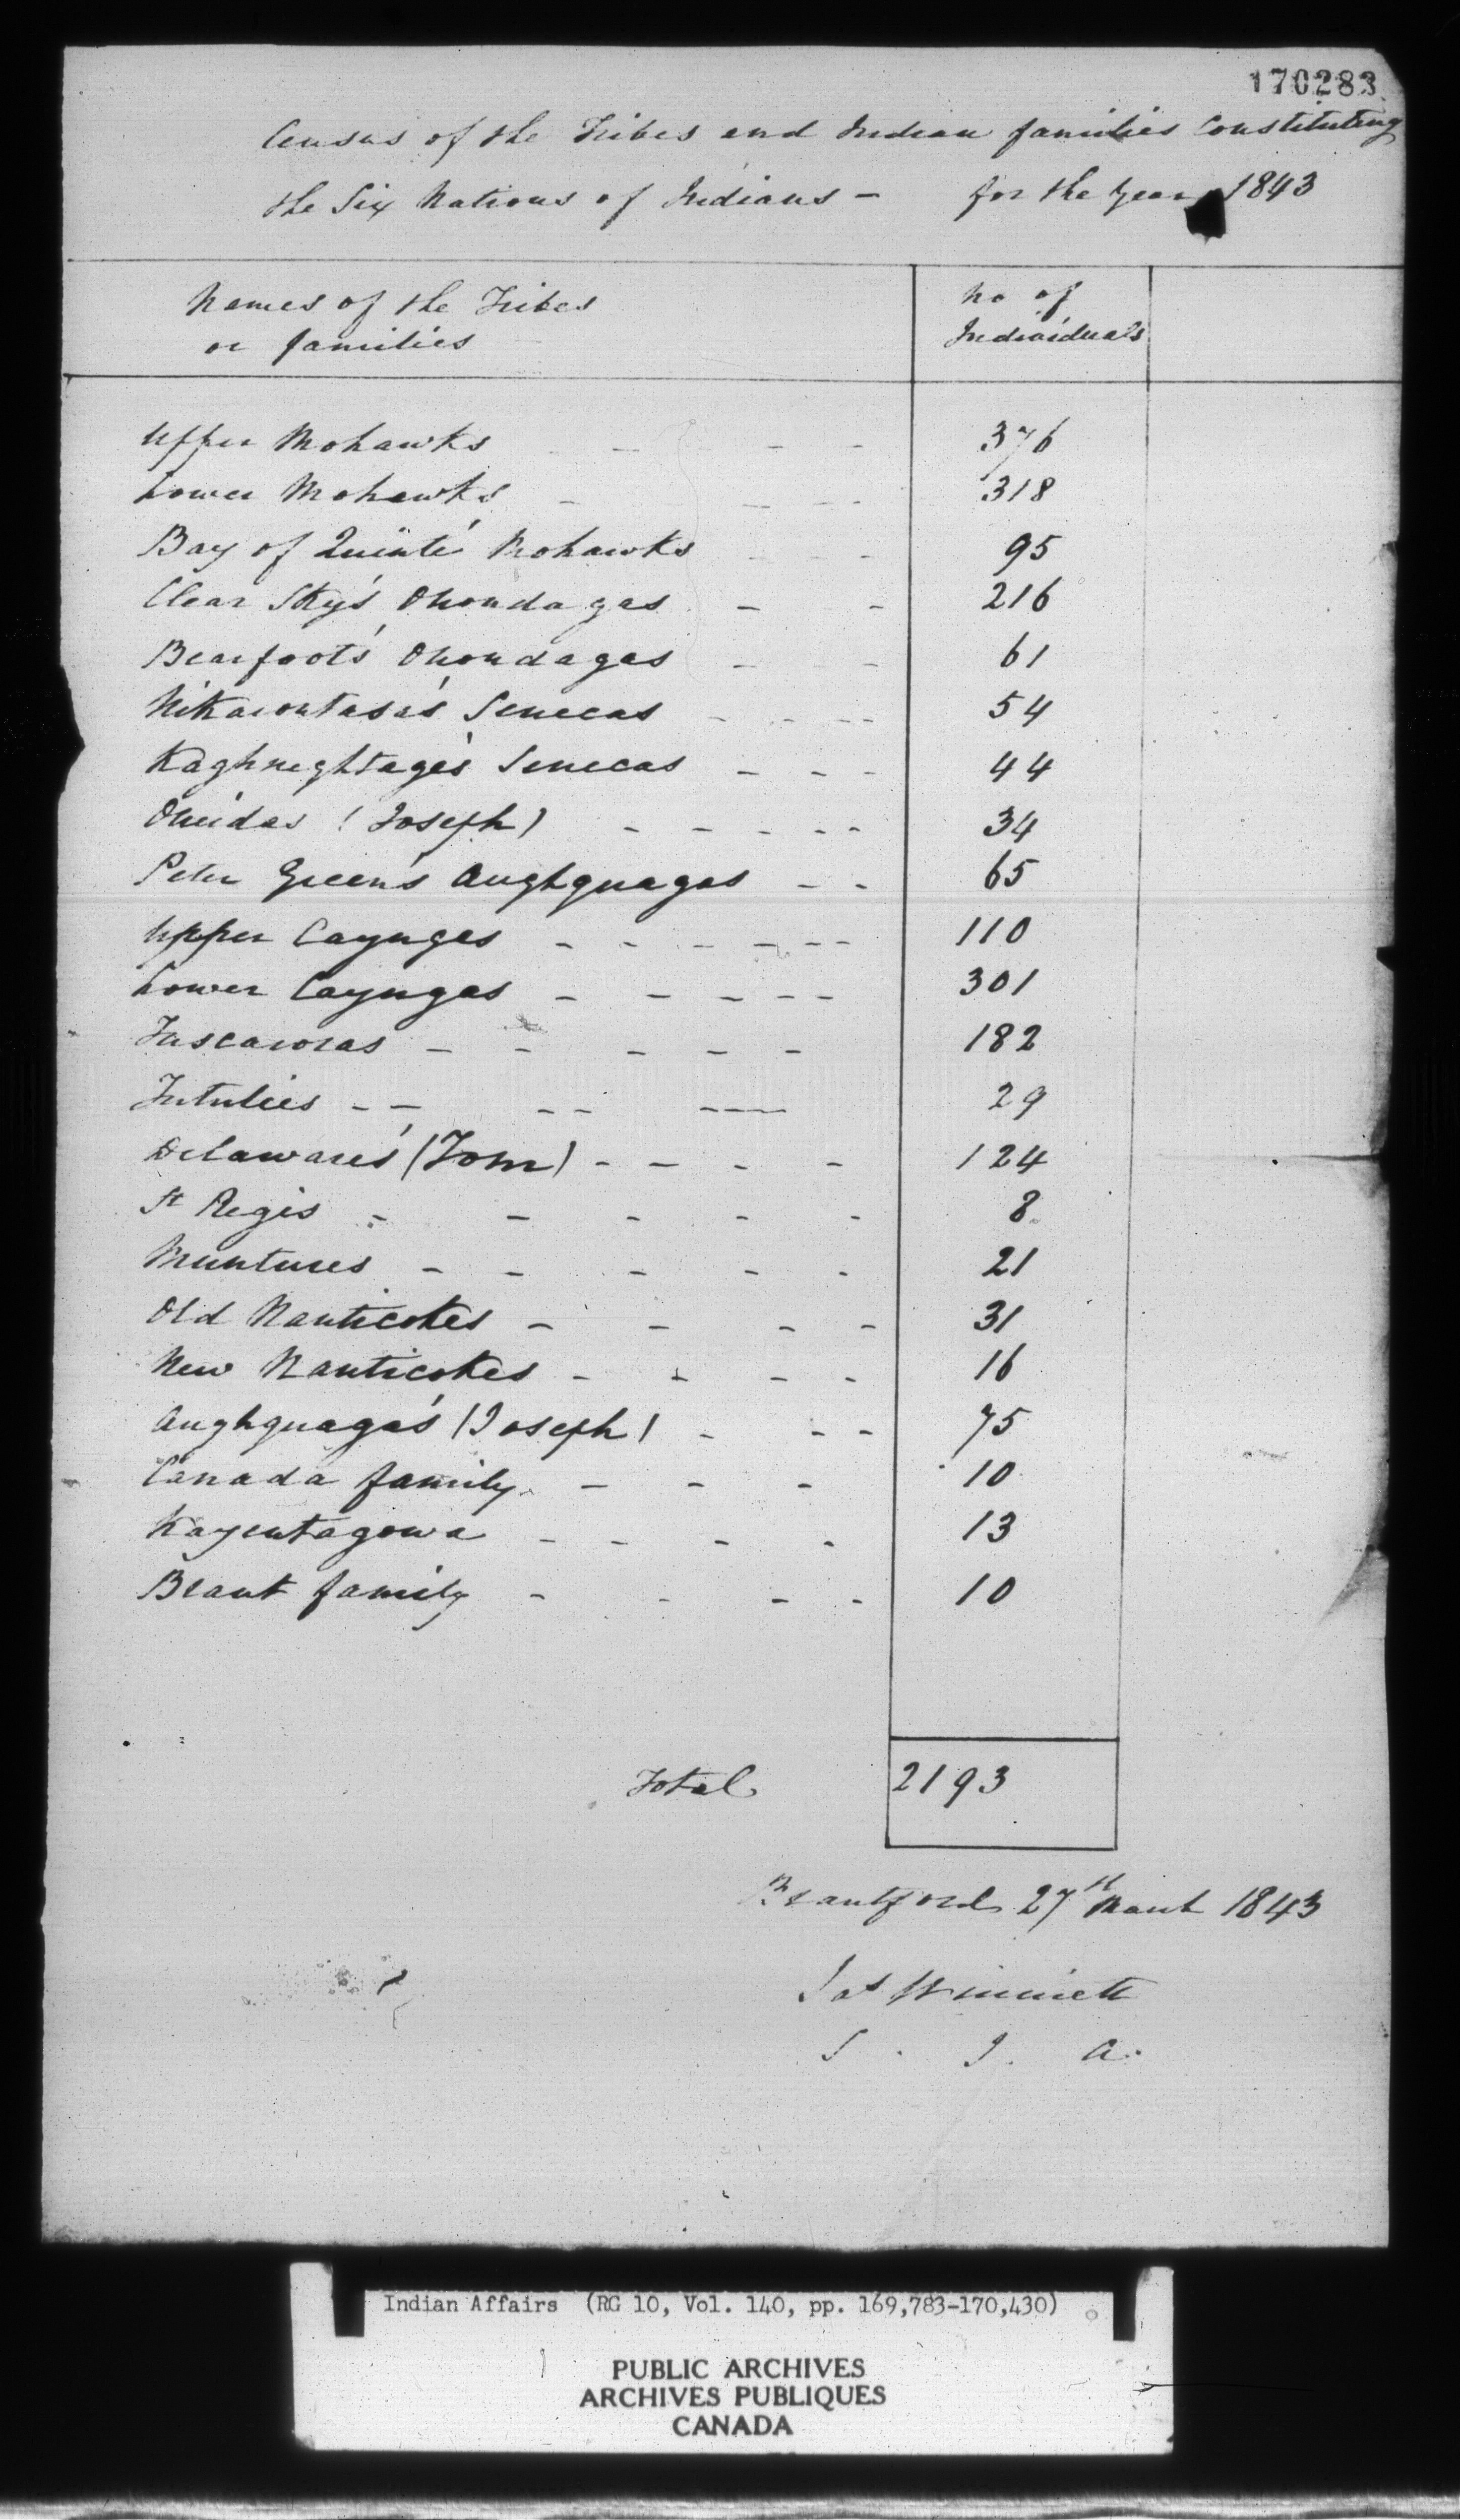 170283
Census of the Tribes and Indian families Constituting
the Six Nations of Indians - for the Year 1843
Names of the Tribes
or families
No of
Individuals
Upper Mohawks - - - 376
Lower Mohawks - - - - 318
Bay of Quinté Mohawks - - - 95
Clear Sky's Onondagas - - 216
Bearfoot's Onondagas - - - 61
Nikarontasa's Senecas - - - - 54
Kaghneghtage's Senecas - - - 44
Oneidas (Joseph) - - - - - 34
Peter Green's Aughquagas - - 65
Upper Cayugas - - - - - - 110
Lower Cayugas - - - - - 301
Tuscaroras - - - - - 182
Tutulies - - - - - - - 29
Delaware's (Tom) - - - - 124
St Regis - - - - - 8
Muntures - - - - - 21
Old Nanticokes - - - - 31
New Nanticokes - - - - 16
Aughquaga's (Joseph) - - - 75
Canada family - - - 10
Kayentagowa - - - - 13
Brant family - - - - 10
Total 2193
Brantford 27st March 1843
Jas Winniett
S. I. A.
Indian Affairs (RG 10, Vol. 140, pp. 169,783-170,430)
PUBLIC ARCHIVES
ARCHIVES PUBLIQUES
CANADA